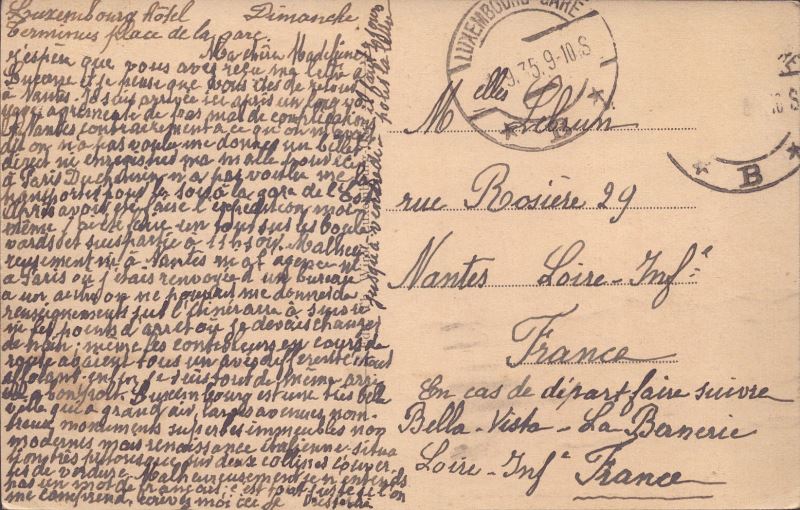 Luxembourg hôtel Dimanche
Terminus place de la gare.
Ma chère Madeleine
J'espère que vous avez reçu ma lettre
et je pense que vous êtes de retour
à Nantes. Je suis arrivée ici après un long vo
yage agrémenté de pas mal de complications
De Nantes contrairement à ce qu'on m'avait
dit on n'a pas voulu me donner un billet
direct ni enregistrer ma malle pour ici
à Paris Duchemin n'a pas voulu me
transporter sous la soir à la gare de l'Est
Après avoir fait faire l'expédition moi
même j'ai été faire un tour sur les boule
vards et suis partie à 11 h 50. Malheu
reusement ni à Nantes ni à l'agence ni
à Paris où j'étais renvoyée d'un bureau
à un autre on ne pouvait me donner de
renseignements sur l'itinéraire à suivre
ni les points d'arrêt où je devais changer
de train; même les contrôleurs en cours de
route avaient tous un avis différent c'était
affolant; enfin je suis tout de même arri
vée à bon port. Luxembourg est une très belle
ville qui a grand air, larges avenues nom-
breux monuments superbes immeubles non
modernes mais renaissance italienne situa
tion très pittoresque sur deux collines couver-
tes de verdure. Malheureusement je n'entends
pas un mot de français; c'est tout juste si l'on
me comprend. écrivez moi ici je
jusqu'à vendredi
pour la
LUXEMBOURG-GARE
9.35.9-10.S
B
Melles Lebrun
rue Rosière 29
Nantes Loire-Infre
France
En cas de départ faire suivre
Bella-Vista-La Bernerie
Loire-Infre France